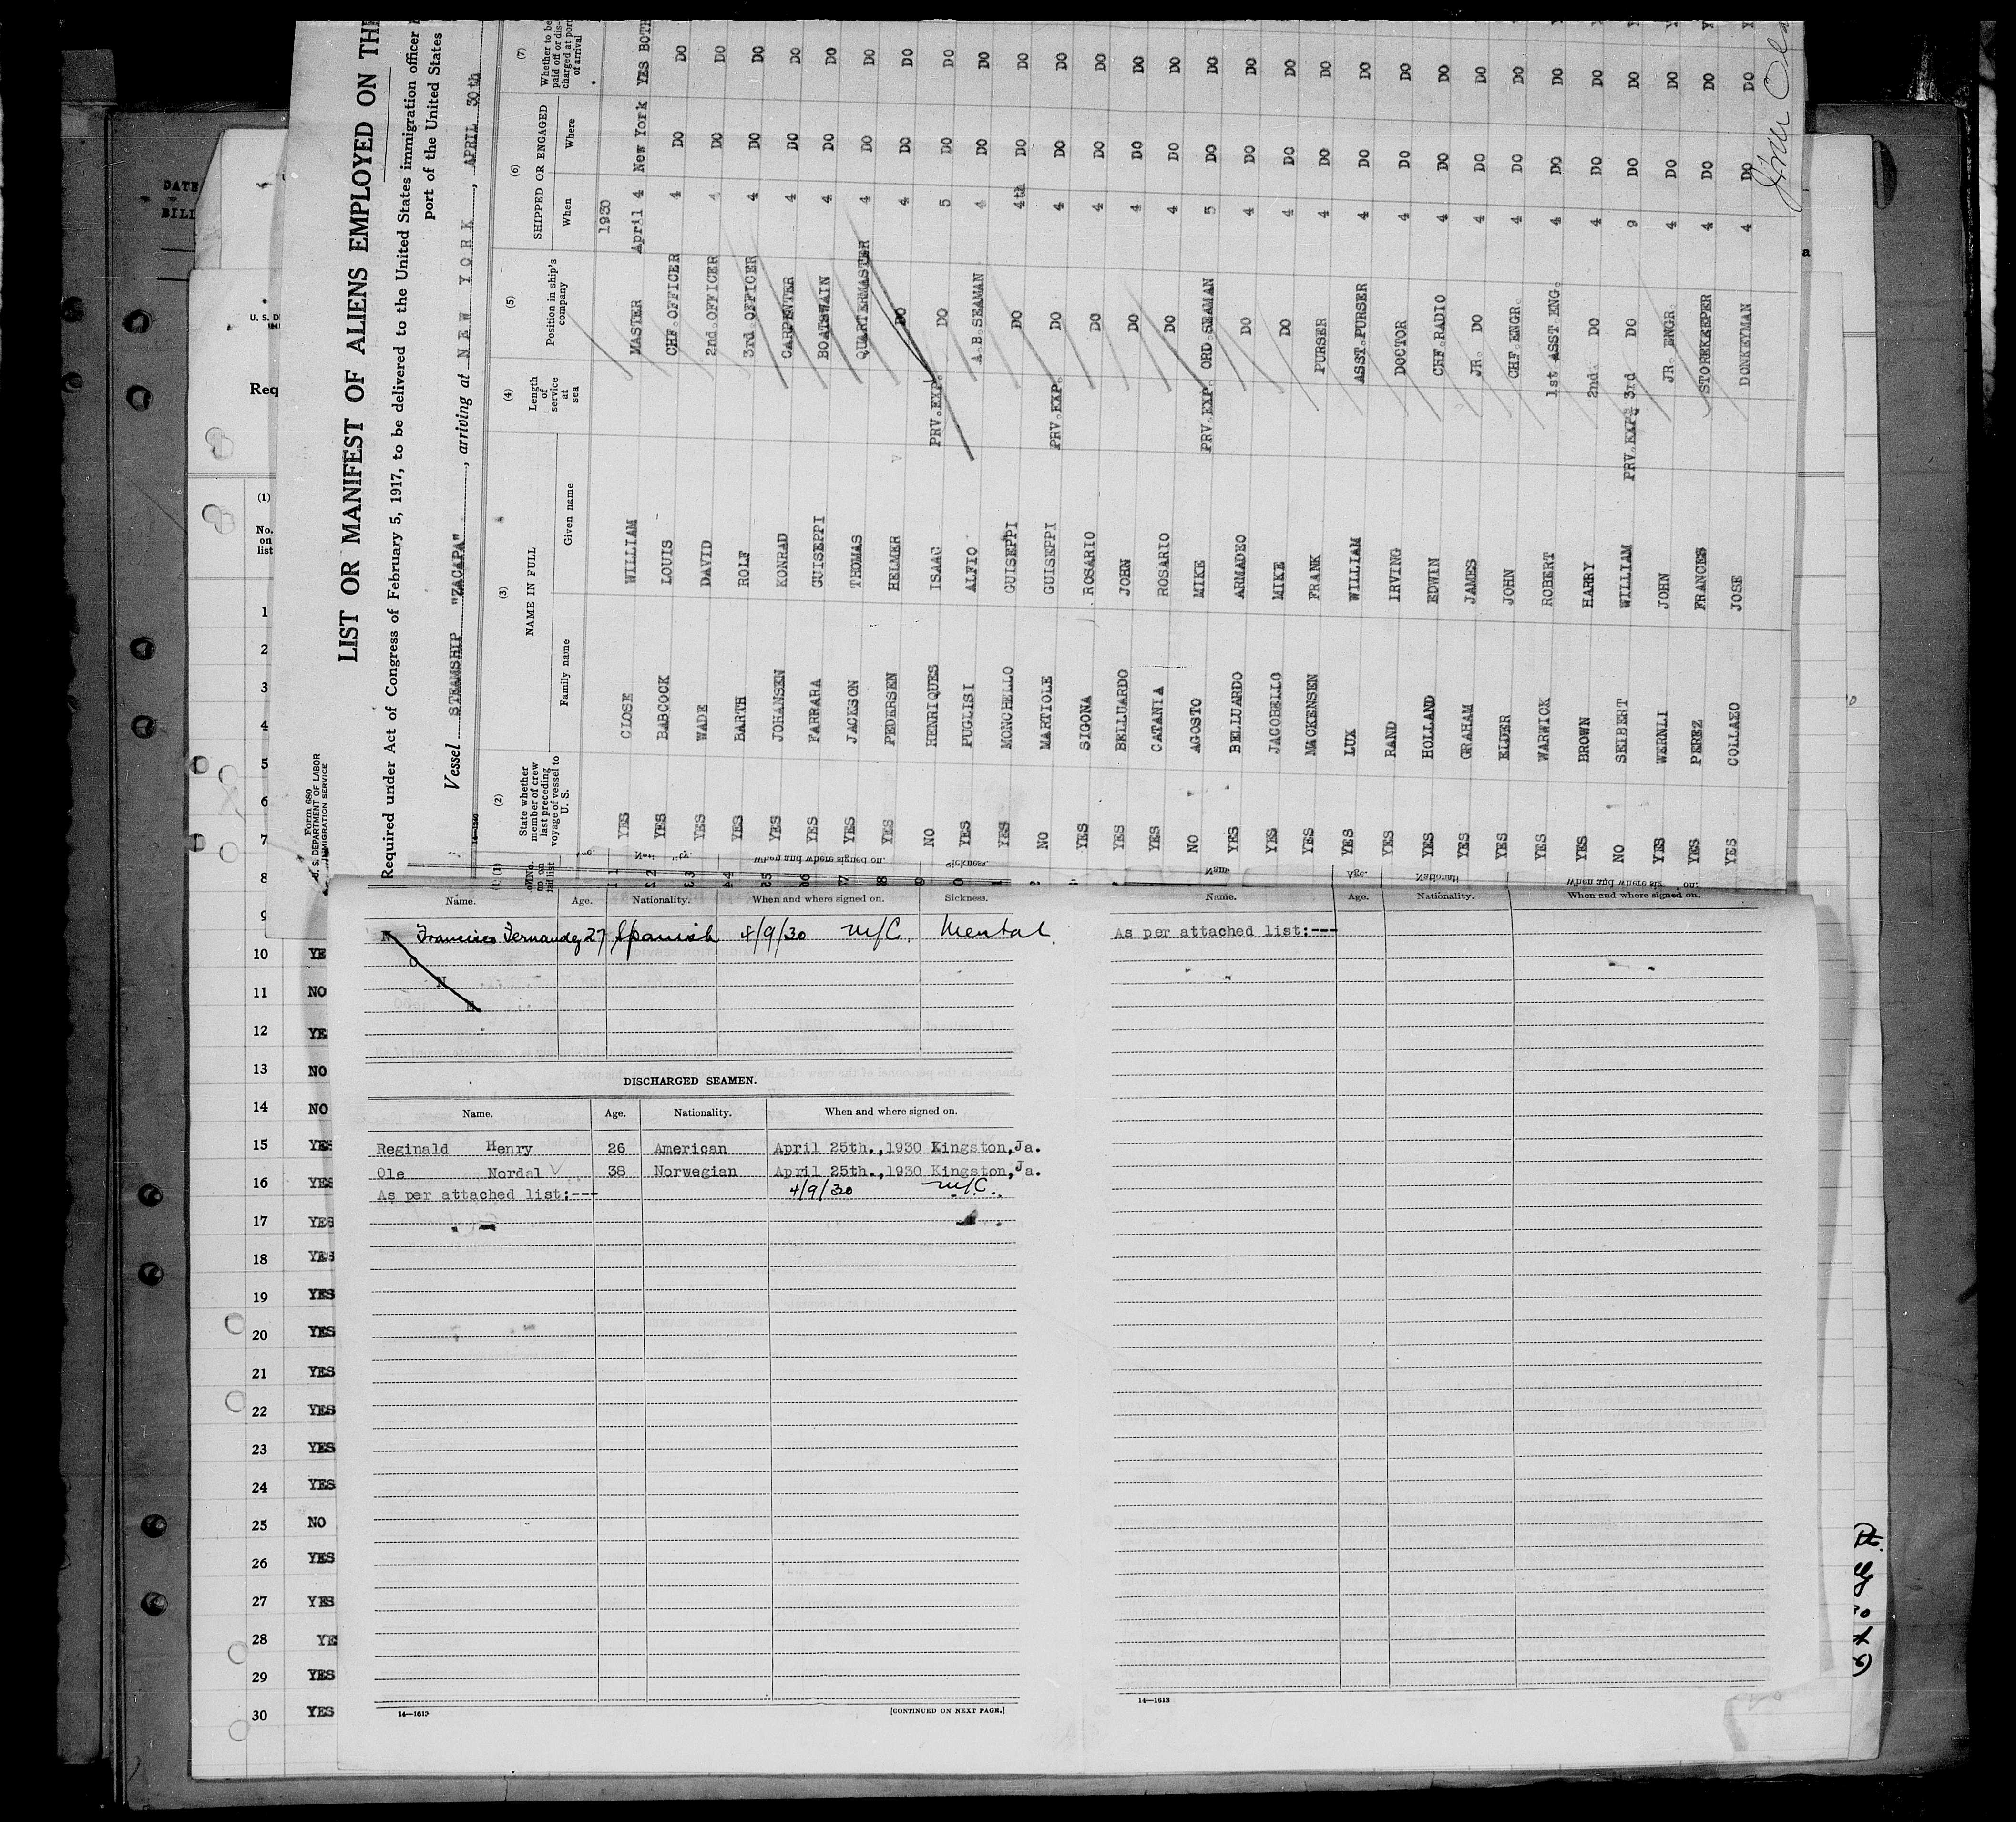 LIST OR MANIFEST OF ALIENS EMPLOYED ON THE
Required under Act of Congress of February 5, 1917, to be delivered to the United States immigration officer
port of the United States
Vessel STEAMSHIP "ZACAPA", arriving at NEW YORK, APRIL 30th
Form 680
U. S. DEPARTMENT OF LABOR
IMMIGRATION SERVICE
(2) (3) (4) (5) (6) (7)
State whether member of crew last preceding voyage of vessel to U. S.
NAME IN FULL
Family name Given name
Length of service at sea
Position in ship's company
SHIPPED OR ENGAGED
When Where
Whether to be paid off or discharged at port of arrival
1930
YES CLOSE WILLIAM MASTER April 4 New York YES BOTH
YES BABCOCK LOUIS CHF.OFFICER 4 DO DO
YES WADE DAVID 2nd.OFFICER 4 DO DO
YES BARTH ROLF 3rd.OFFICER 4 DO DO
YES JOHANSEN KONRAD CARPENTER 4 DO DO
YES FARRARA GUISEPPI BOATSWAIN 4 DO DO
YES JACKSON THOMAS QUARTERMASTER 4 DO DO
YES PEDERSEN HELMER DO 4 DO DO
NO HENRIQUES ISAAC PRV.EXP. DO 5 DO DO
YES PUGLISI ALFIO A.B.SEAMAN 4 DO DO
YES MONCHELLO GUISEPPI DO 4th DO DO
NO MARTIOLE GUISEPPI PRV.EXP. DO 4 DO DO
YES SIGONA ROSARIO DO 4 DO DO
YES BELLUARDO JOHN DO 4 DO DO
YES CATANIA ROSARIO DO 4 DO DO
NO AGOSTO MIKE PRV.EXP. ORD.SEAMAN 5 DO DO
YES BELLUARDO ARMADEO DO 4 DO DO
YES JACOBELLO MIKE DO 4 DO DO
YES MACKENSEN FRANK PURSER 4 DO DO
YES LUX WILLIAM ASST.PURSER 4 DO DO
YES RAND IRVING DOCTOR 4 DO DO
YES HOLLAND EDWIN CHF.RADIO 4 DO DO
YES GRAHAM JAMES JR. DO 4 DO DO
YES ELDER JOHN CHF.ENGR. 4 DO DO
YES WARWICK ROBERT 1st ASST ENG. 4 DO DO
YES BROWN HARRY 2nd. DO 4 DO DO
NO SEIBERT WILLIAM PRV.EXP. 3rd DO 9 DO DO
YES WERNLI JOHN JR. ENGR. 4 DO DO
YES PEREZ FRANCES STOREKEEPER 4 DO DO
YES COLLAZO JOSE DONKEYMAN 4 DO DO
DATE
BILL
U. S. D
Req
(1)
No. on list
1
2
3
4
5
6
7
8
9
10 YE
11 NO
12 YE
13 NO
14 NO
15 YES
16 YES
17 YES
18 YES
19 YES
20 YES
21 YES
22 YES
23 YES
24 YES
25 NO
26 YES
27 YES
28 YE
29 YES
30 YES
Name. Age. Nationality. When and where signed on. Sickness.
Francisco Fernandez 27 Spanish 4/9/30 M/C. Mental
N
O
N
E
DISCHARGED SEAMEN.
Name. Age. Nationality. When and where signed on.
Reginald Henry 26 American April 25th.,1930 Kingston,Ja.
Ole Nordal 38 Norwegian April 25th.,1930 Kingston,Ja.
As per attached list:--- 4/9/30 M/C.
14—1613
[CONTINUED ON NEXT PAGE.]
Name. Age. Nationality. When and where signed on.
As per attached list:---
14—1613